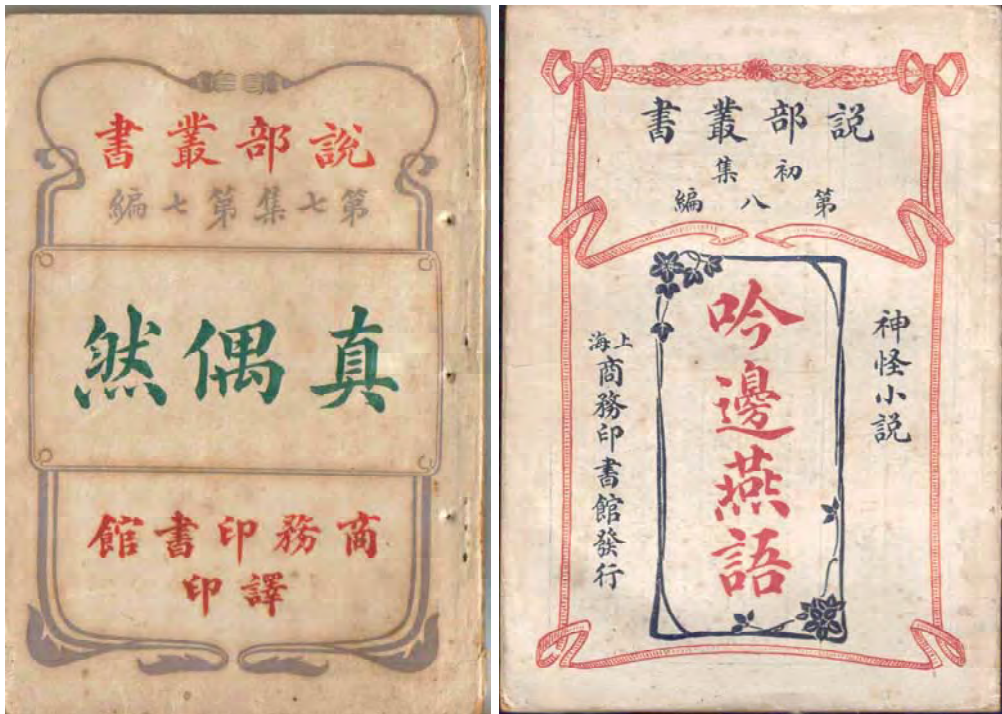 說部叢書
第七集第七編
真偶然
商務印書館
譯印
說部叢書
初集
第八編
神怪小説
吟邊燕語
上海
商務印書館發行